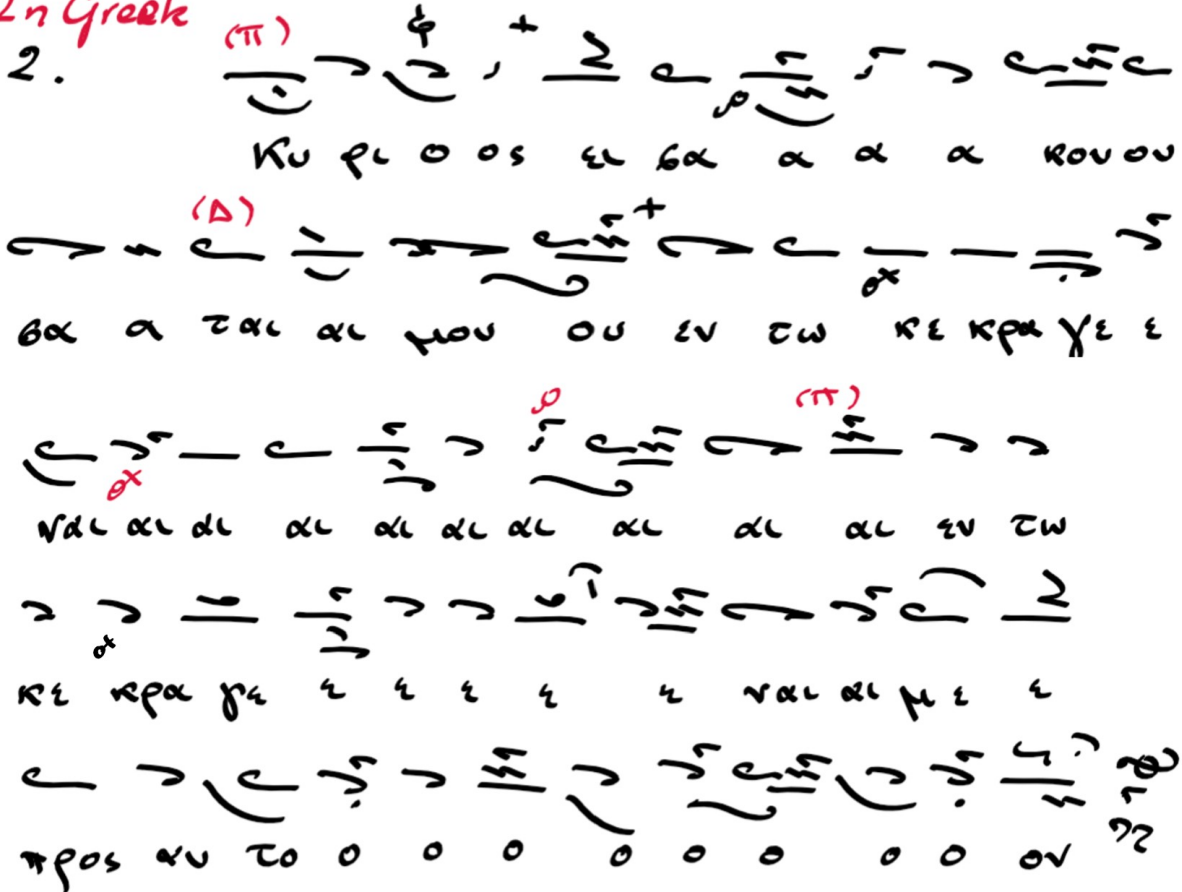 In Greek
2.
(π)
Κυ ρι ο ος ει σα α α α κου ου
(Δ)
σα α ται αι μου ου εν τω κε κρα γε ε
(π)
ναι αι αι αι αι αι αι αι αι αι εν τω
κε κρα γε ε ε ε ε ε ναι αι με ε
προς αυ το ο ο ο ο ο ο ο ο ον